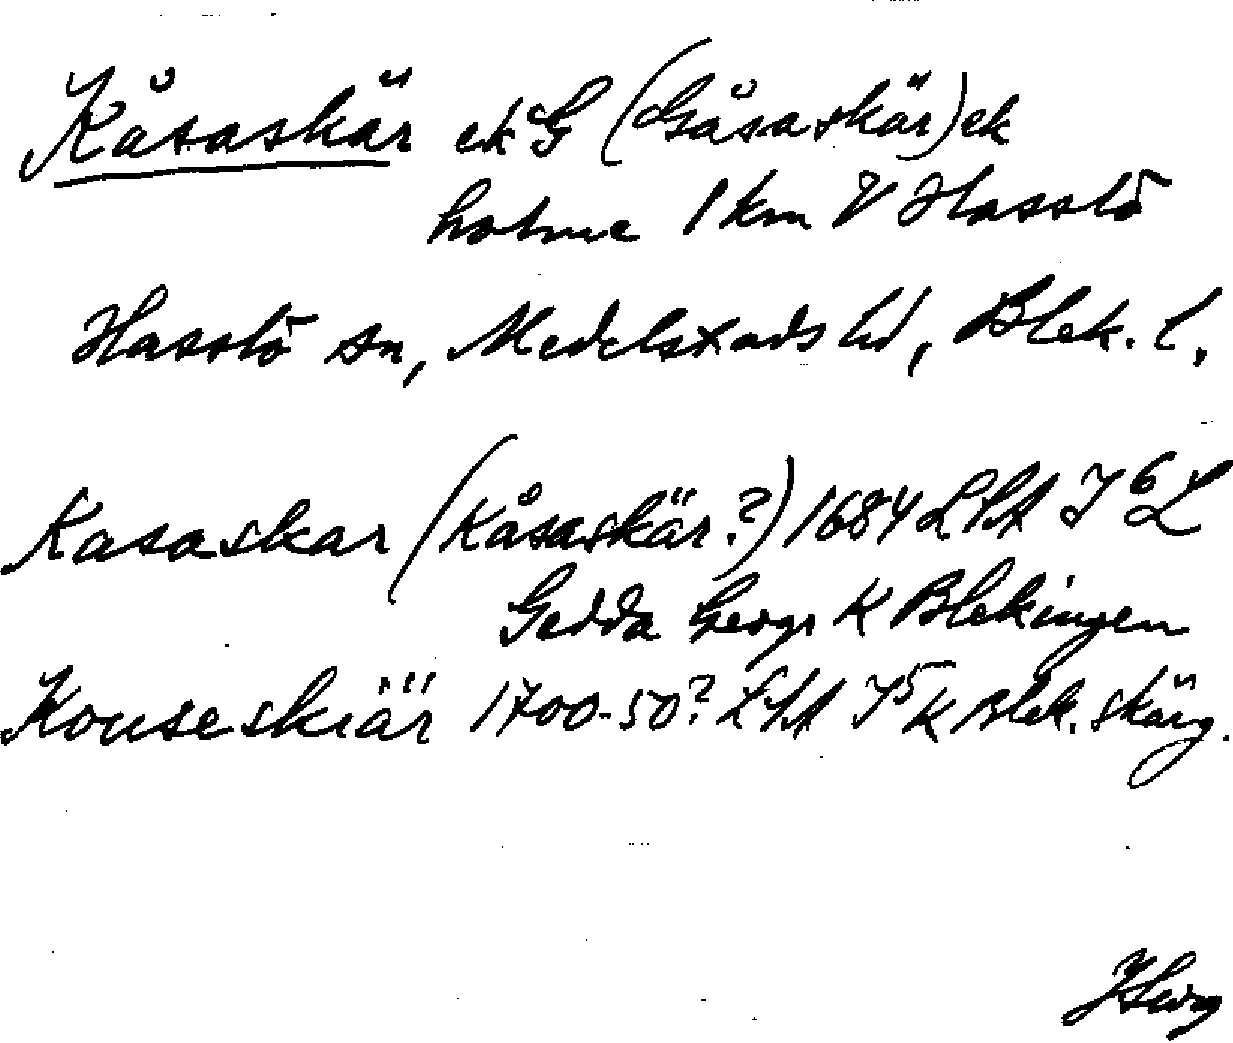 Kåsaskär ek G (Gåsaskär) ek
holme 1 km V Hasslö
Hasslö sn, Medelstads hd, Blek. l.
Kasaskar (Kåsaskär?) 1684 LSA I 6 L
Gedda Geogr K Blekingen
Kouseskiär 1700-50? LSA I 5 K Blek. skärg.